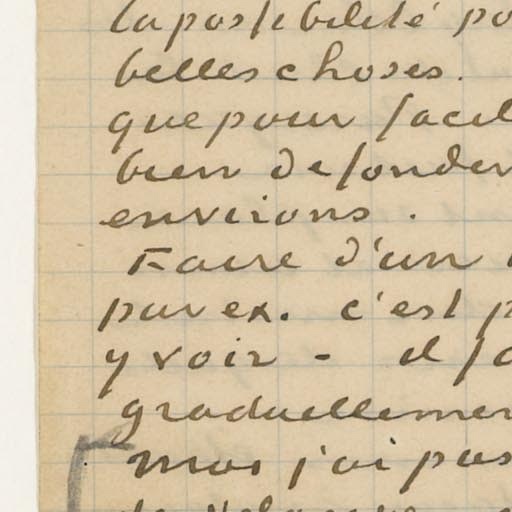 la possibilité po
belles choses.
que pour facil
bien de fonder
environs.
Faire d'un
par ex. c'est p
y voir - il fa
graduellemen
mais j'ai pas